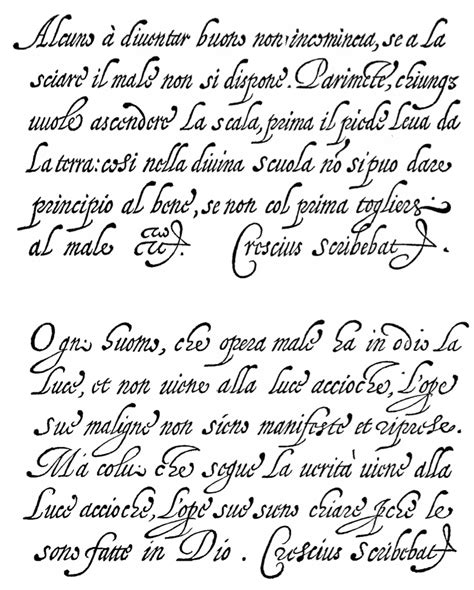 Alcuno à diventar buono non incomincia, se a la
sciare il male non si dispone. Parimēte, chiunq3
vuole ascendere la scala, prima il piede leva da
la terra: cosi nella divina scuola nō si puo dare
principio al bene, se non col prima togliersi
al male etc. Crescius scribebat.
Ogni huomo, che opera male ha in odio la
luce, et non viene alla luce accioche, l'ope
sue maligne non sieno manifeste et riprese.
Ma colui che segue la verità viene alla
luce accioche, l'ope sue sieno chiare pche le
sono fatte in Dio. Crescius scribebat